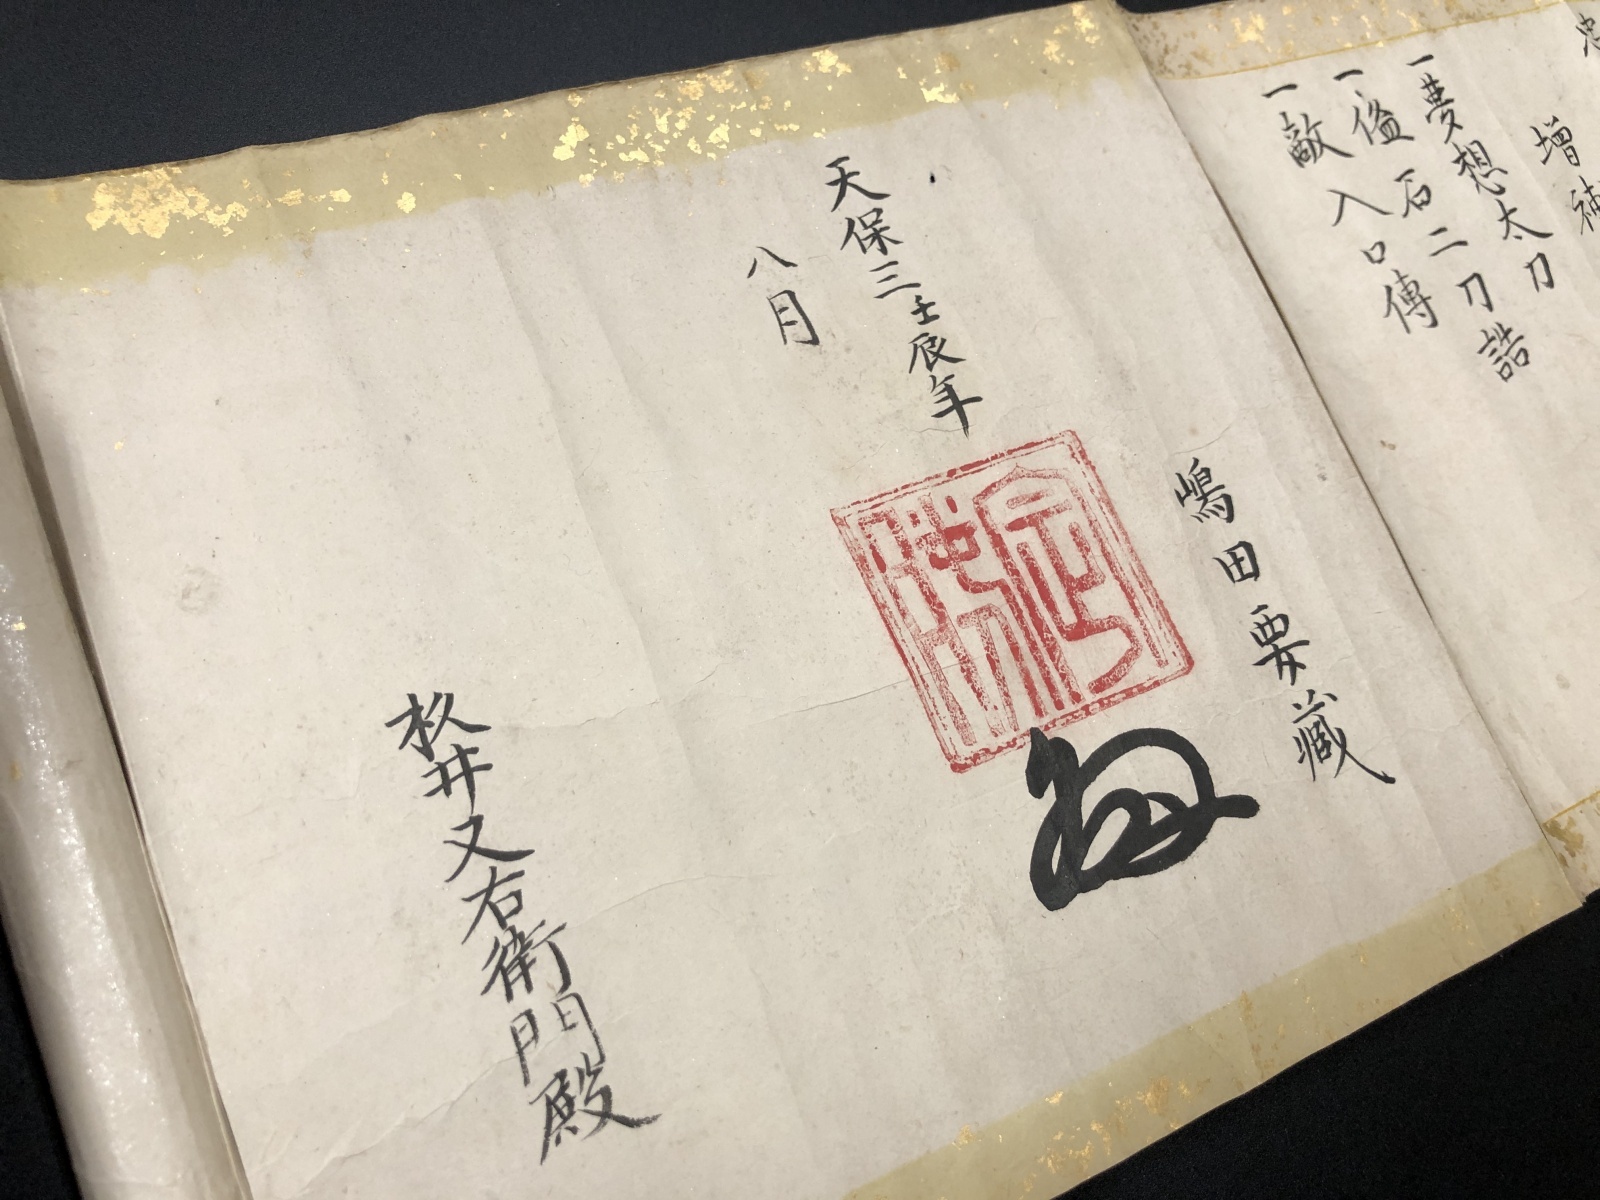 増補
一夢想太刀
一𣵀石二刀誥
一敵入口傳
嶋田要藏
天保三壬辰年
八月
杦井又右衛門殿